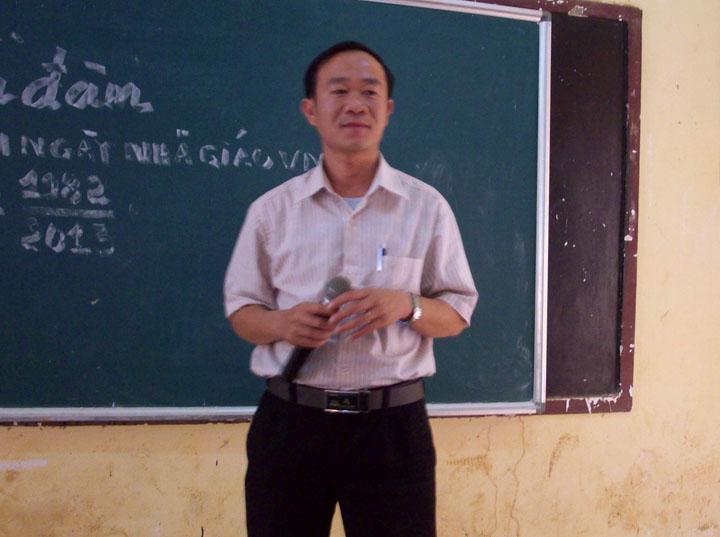 đàm
NGÀY NHÀ GIÁO VN
1982
2013